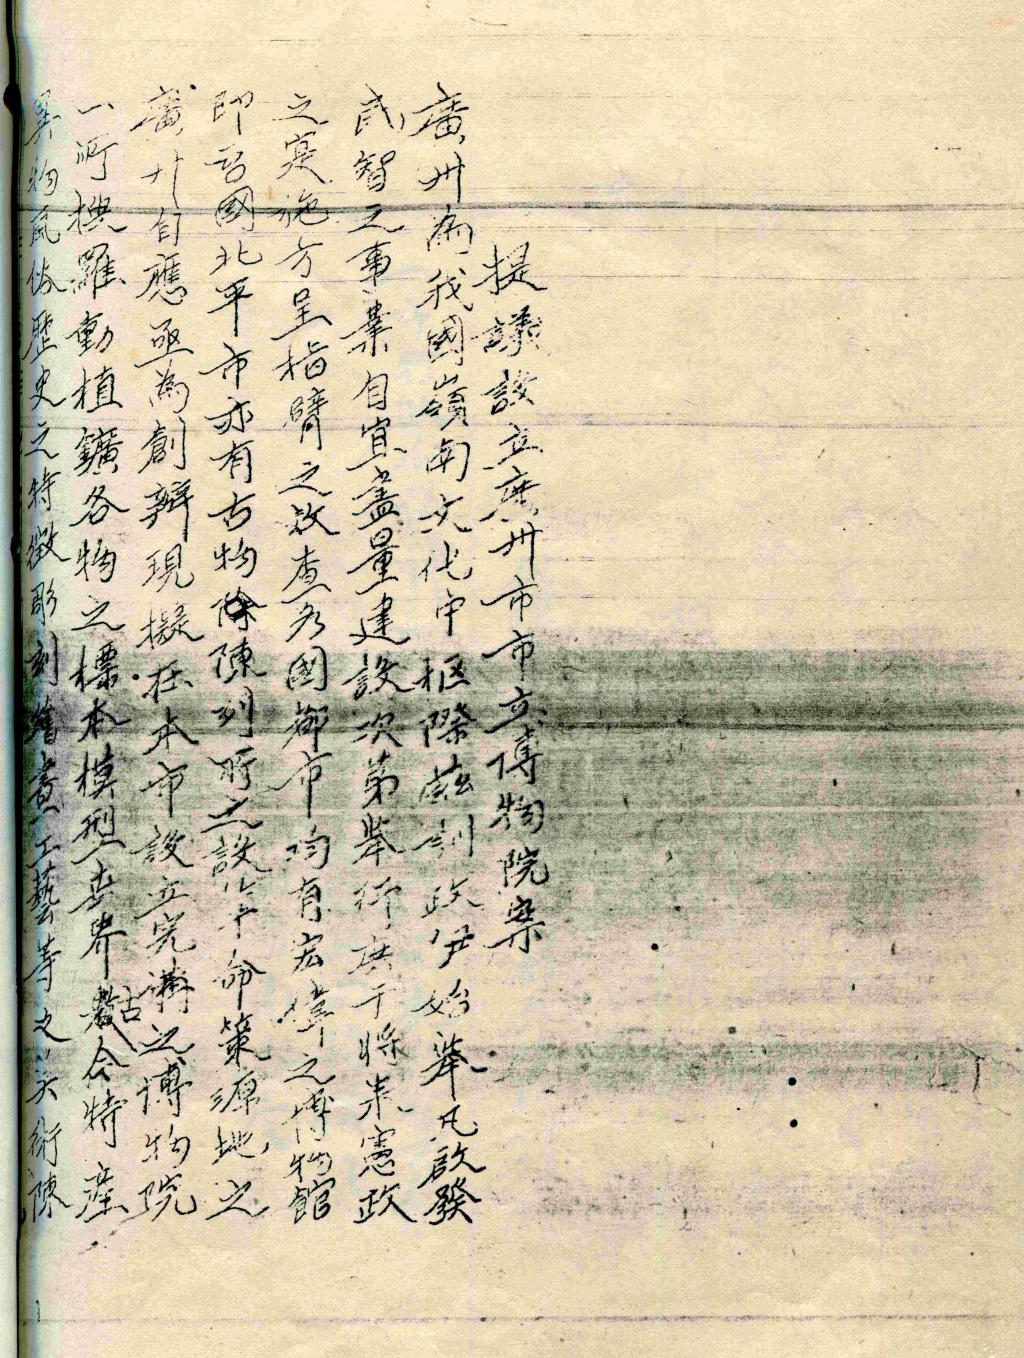 提議設立廣州市市立博物院案
廣州為我國嶺南文化中樞際茲訓政伊始舉凡啟發
民智之事業自宜盡量建設次第舉行庶于將來憲政
之實施方呈指臂之效查各國都市均有宏偉之博物館
即吾國北平市亦有古物陳列所之設革命策源地之
廣州自應亟為創辦現擬在本市設立完備之博物院
一所搜羅動植鑛各物之標本模型世界古今特產
異物風俗歷史之特徵彫刻繪畫工藝等之美術陳